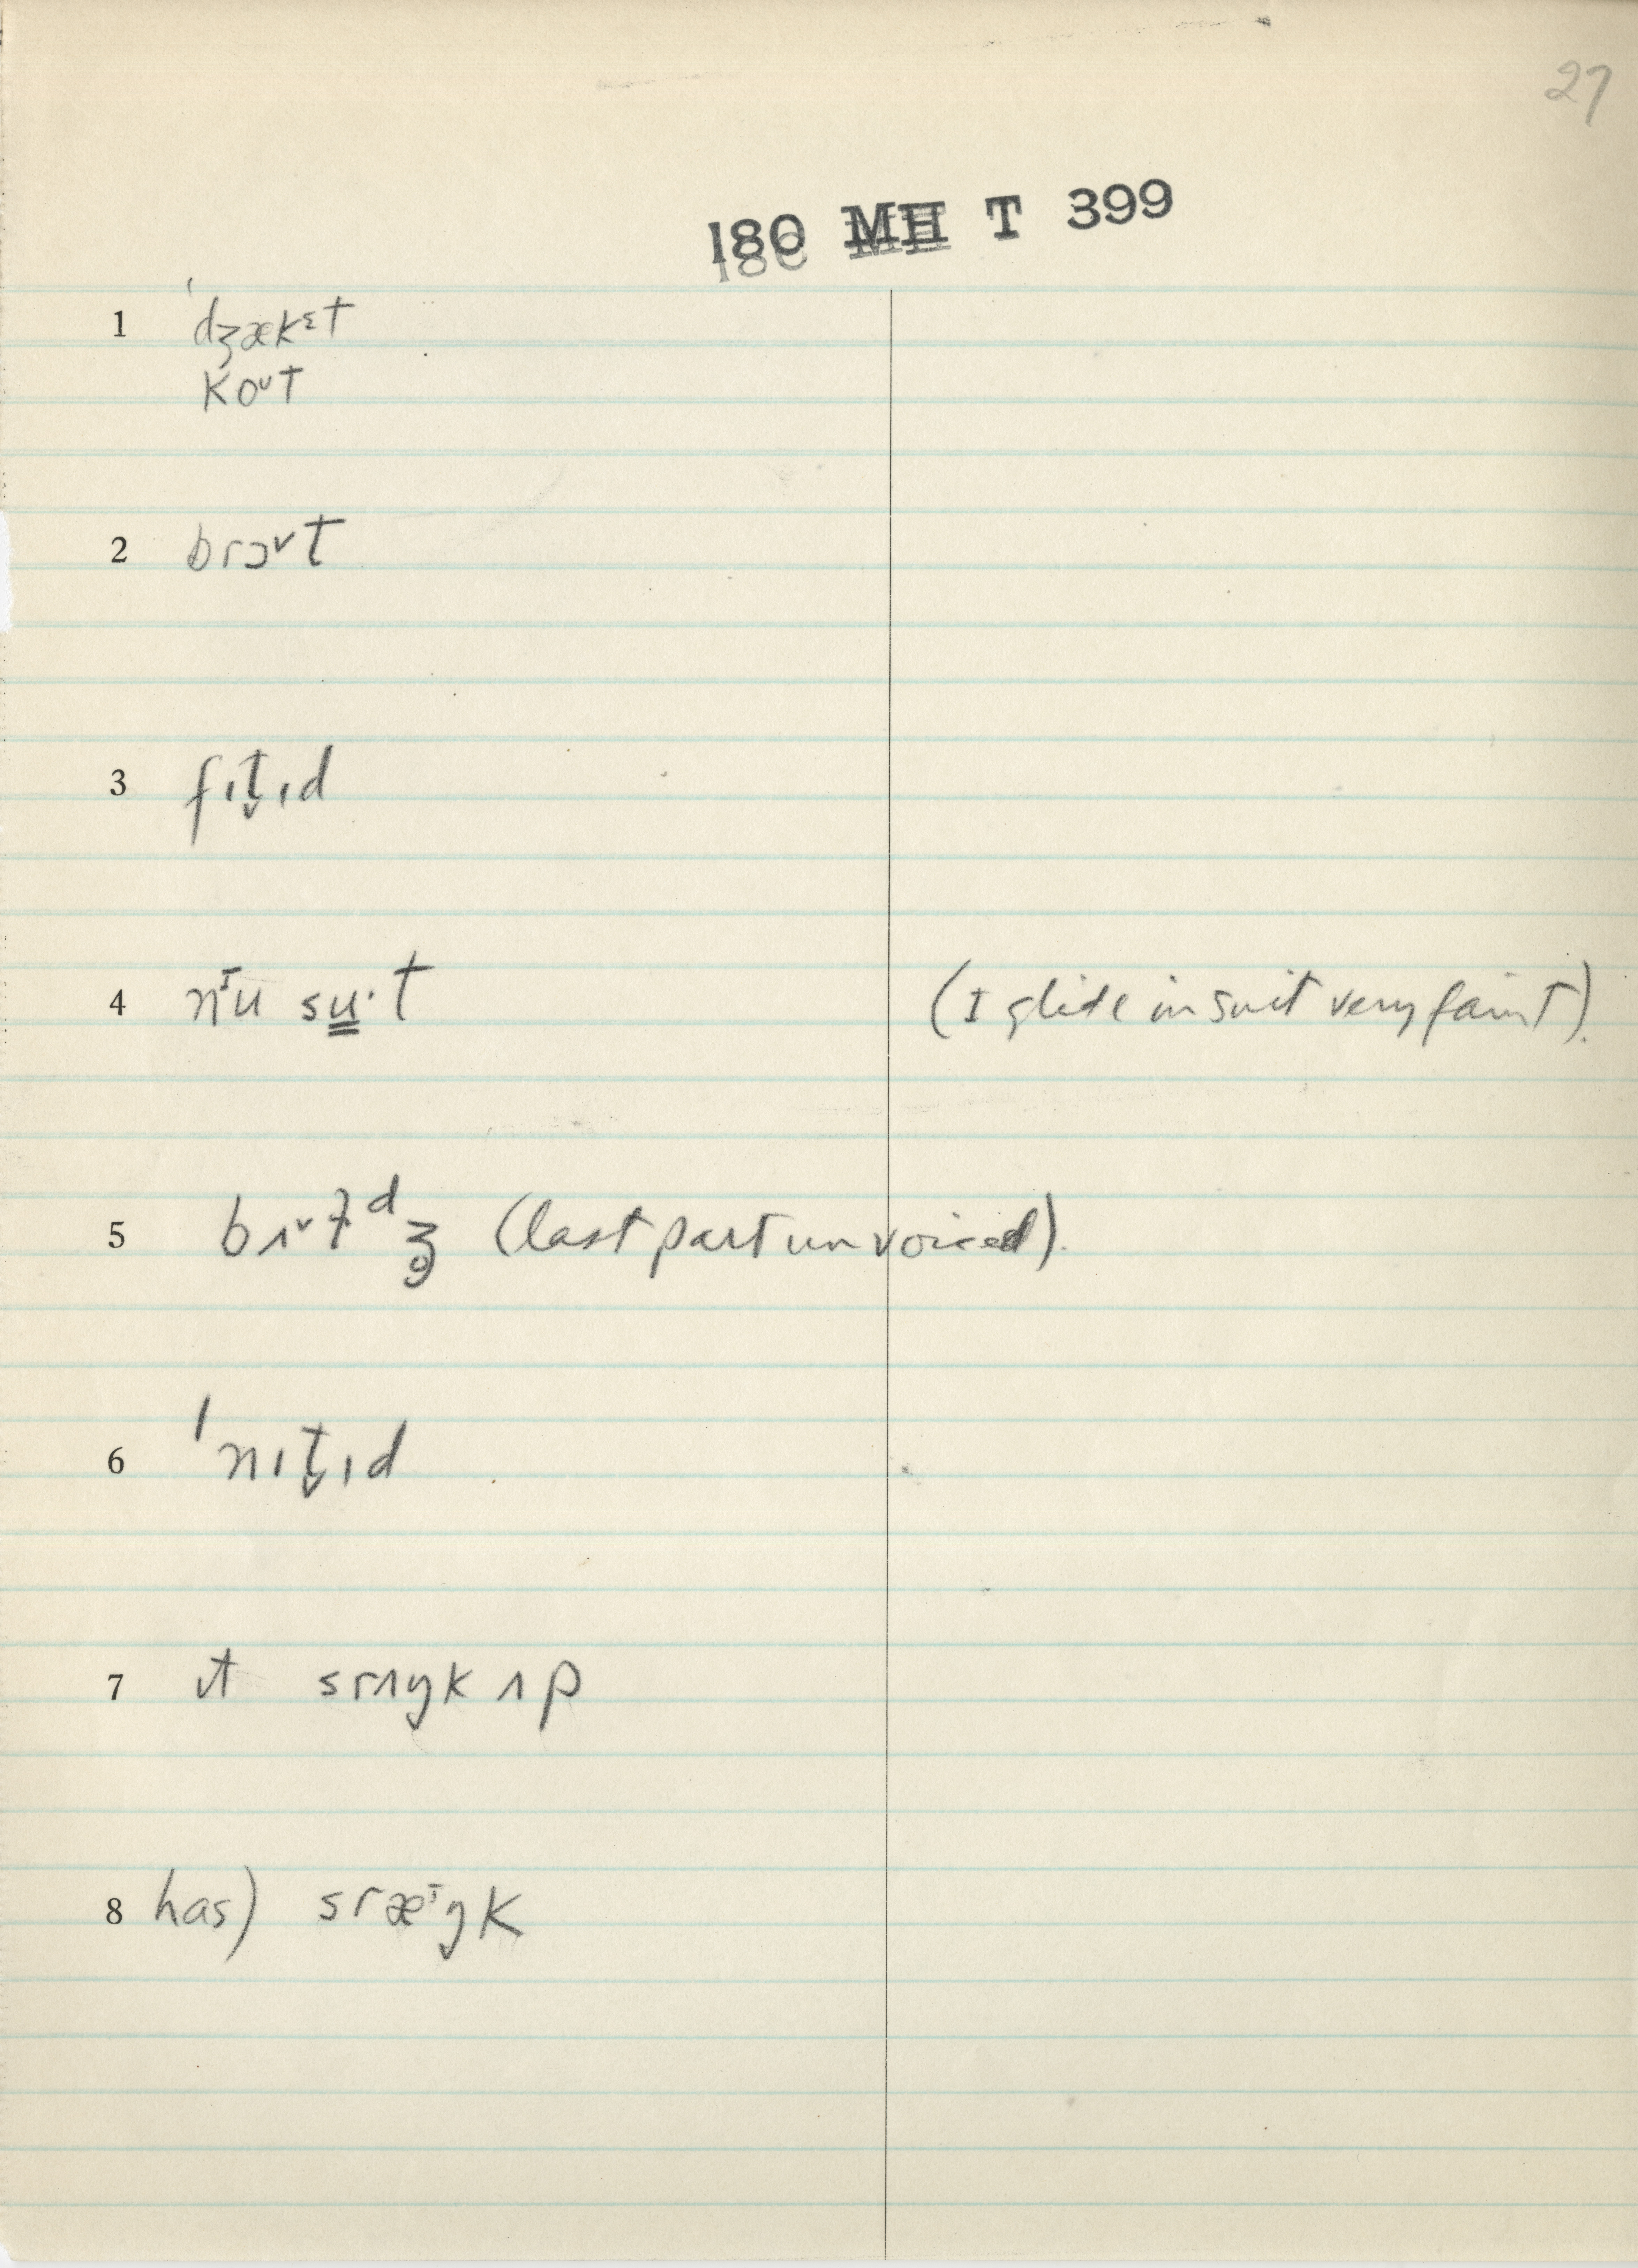 27
180 MH T 399
1 ˈdʒækᵋt
koᵘt
2 brɔˇt
3 fɪt̬ɪd
4 nᴵu su̳·t (I glide in suit very faint).
5 bɪˇɫᵈʒ̥ (last part unvoiced).
6 ˈnɪt̬ɪd
7 ɪt srʌŋk ʌp
8 has) sræᴵŋk